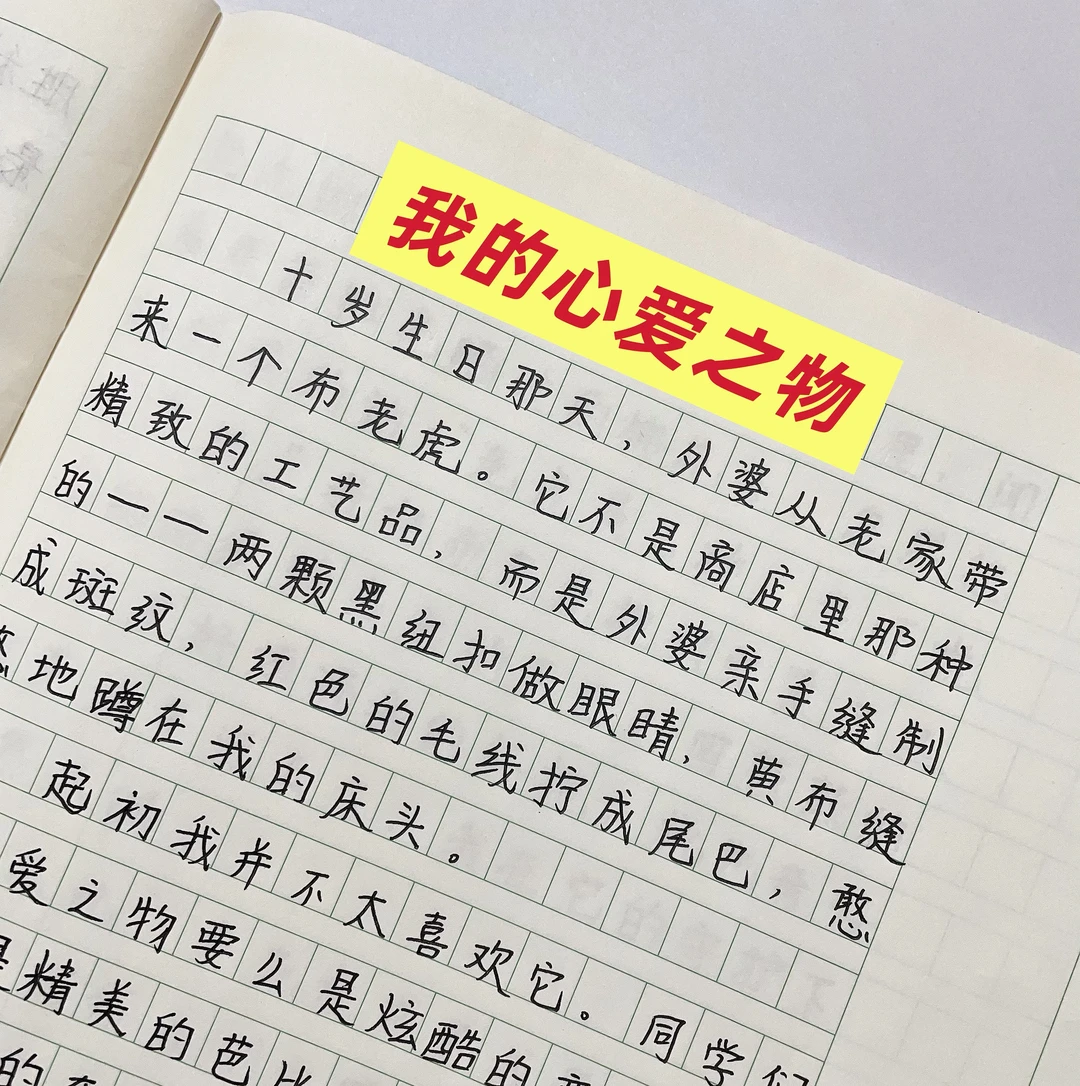 我的心爱之物
十岁生日那天，外婆从老家带
来一个布老虎。它不是商店里那种
精致的工艺品，而是外婆亲手缝制
的——两颗黑纽扣做眼睛，黄布缝
成斑纹，红色的毛线拧成尾巴，憨
地蹲在我的床头。
起初我并不太喜欢它。同学们
爱之物要么是炫酷的
是精美的芭比
的